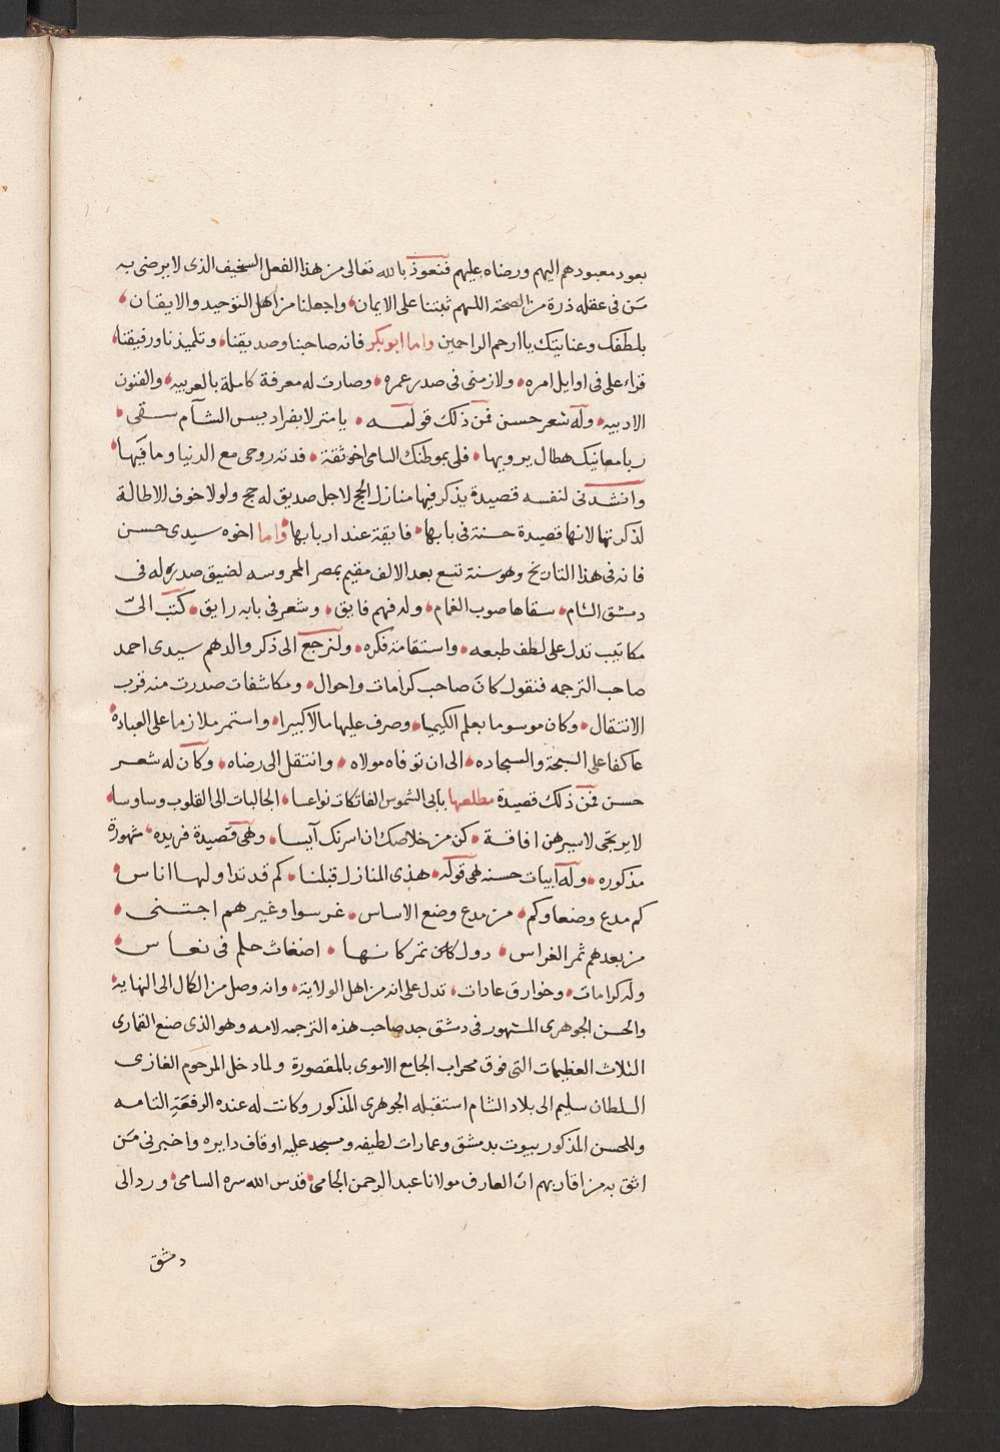 بعود معبودهم اليهم ورضاه عليهم فنعوذ بالله تعالى من هذا الفعل السخيف الذى لا يرضى به
مَن فى عقله ذرة من الصحة اللهم ثبتنا على الايمان واجعلنا من اهل التوحيد والايقان
بلطفك وعنايتك يا ارحم الراحمين واما ابو بكر فانه صاحبنا وصديقنا وتلميذنا ورفيقنا
قراء على فى اوايل امره ولازمنى فى صدر عمره وصارت له معرفة كاملة بالعربيه والفنون
الادبيه وله شعر حسن فمن ذلك قوله يا منزلا بفراديس الشآم سقى
ربا معانيك هطال يرويها فلى بموطنك السامى اخو ثقة فدته روحى مع الدنيا وما فيها
وانشدنى لنفسه قصيدة يذكر فيها منازل الحج لاجل صديق له حج ولولا خوف الاطالة
لذكرتها لانها قصيدة حسنة فى بابها فايقة عند اربابها واما اخوه سيدى حسن
فانه فى هذا التاريخ وهو سنة تسع بعد الالف مقيم بمصر المحروسه لضيق صدره له فى
دمشق الشام سقاها صوب الغمام وله فهم فايق وشعر فى بابه رايق كتب الىّ
مكاتيب تدل على لطف طبعه واستقامة فكره ولنرجع الى ذكر والدهم سيدى احمد
صاحب الترجمه فنقول كان صاحب كرامات واحوال ومكاشفات صدرت منه قرب
الانتقال وكان موسوما بعلم الكيميا وصرف عليها مالا كبيرا واستمر ملازما على العبادة
عاكفا على السبحة والسجاده الى ان توفاه مولاه وانتقل الى رضاه وكان له شعر
حسن فمن ذلك قصيدة مطلعها بابى الشموس الفاتكات نواعسا الجالبات الى القلوب وساوسا
لا يرتجى لاسيرهن افاقة كن من خلاصك ان اسرنك آيسا وهى قصيدة فريده مشهورة
مذكوره وله ابيات حسنه هى قوله هذى المنازل قبلنا كم قد تداولها اناس
كم مدع وضعا وكم من مدع وضع الاساس غرسوا وغيرهم اجتنى
من بعدهم ثمر الغراس دول كان تمر كانها اضغاث حلم فى نعاس
وله كرامات وخوارق عادات تدل على انه من اهل الولاية وانه وصل من الكمال الى النهاية
والحسن الجوهرى المشهور فى دمشق جد صاحب هذه الترجمه لامه وهو الذى صنع القمارى
الثلاث العظيمات التى فوق محراب الجامع الاموى بالمقصورة ولما دخل المرحوم الغازى
السلطان سليم الى بلاد الشام استقبله الجوهرى المذكور وكانت له عنده الرفعة التامه
وللحسن المذكور بيوت بدمشق وعمارات لطيفه ومسجد عليه اوقاف دايره واخبرنى مَن
اثق به من اقاربهم ان العارف مولانا عبد الرحمن الجامى قدس الله سره السامى ورد الى
دمشق